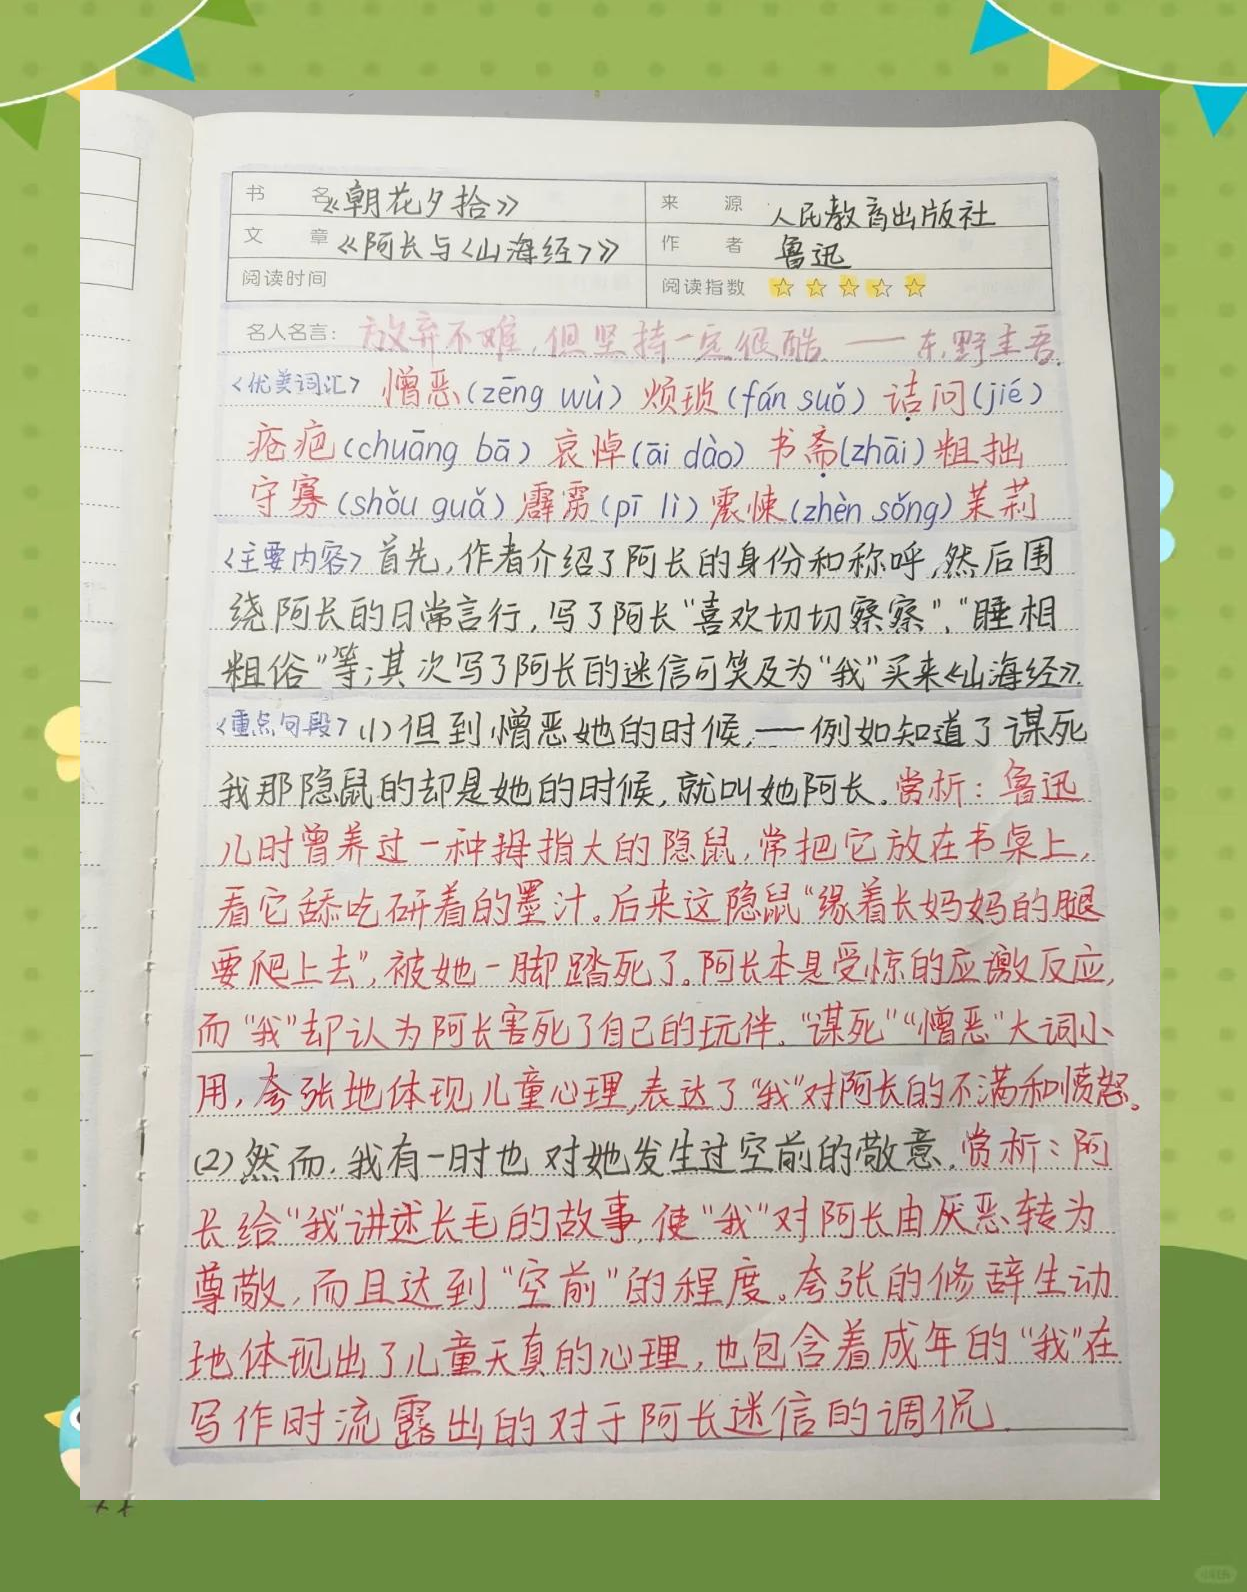 书 名 《朝花夕拾》 来 源 人民教育出版社
文 章 《阿长与〈山海经〉》 作 者 鲁迅
阅读时间 阅读指数 ☆☆☆☆☆
名人名言: 放弃不难,但坚持一定很酷 ——东野圭吾.
<优美词汇> 憎恶(zēng wù) 烦琐(fán suǒ) 诘问(jié)
疮疤(chuāng bā) 哀悼(āi dào) 书斋(zhāi) 粗拙
守寡(shǒu guǎ) 霹雳(pī lì) 震悚(zhèn sǒng) 茉莉
<主要内容> 首先,作者介绍了阿长的身份和称呼,然后围
绕阿长的日常言行,写了阿长“喜欢切切察察”、“睡相
粗俗”等;其次写了阿长的迷信可笑及为“我”买来《山海经》.
<重点句段> (1)但到憎恶她的时候,——例如知道了谋死
我那隐鼠的却是她的时候,就叫她阿长。赏析:鲁迅
儿时曾养过一种拇指大的隐鼠,常把它放在书桌上,
看它舔吃研着的墨汁。后来这隐鼠“缘着长妈妈的腿
要爬上去”,被她一脚踏死了。阿长本是受惊的应激反应,
而“我”却认为阿长害死了自己的玩伴。“谋死”“憎恶”大词小
用,夸张地体现儿童心理,表达了“我”对阿长的不满和愤怒。
(2)然而,我有一时也对她发生过空前的敬意.赏析:阿
长给“我”讲述长毛的故事,使“我”对阿长由厌恶转为
尊敬,而且达到“空前”的程度。夸张的修辞生动
地体现出了儿童天真的心理,也包含着成年的“我”在
写作时流露出的对于阿长迷信的调侃.